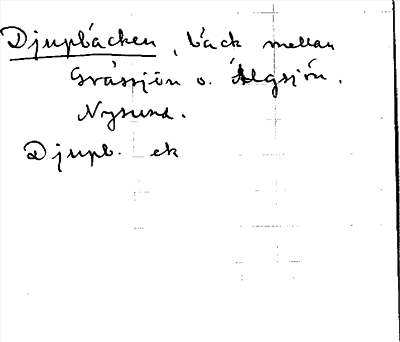 Djupbäcken, bäck mellan
Gråssjön o. Älgsjön.
Nysund.
Djupb. ek